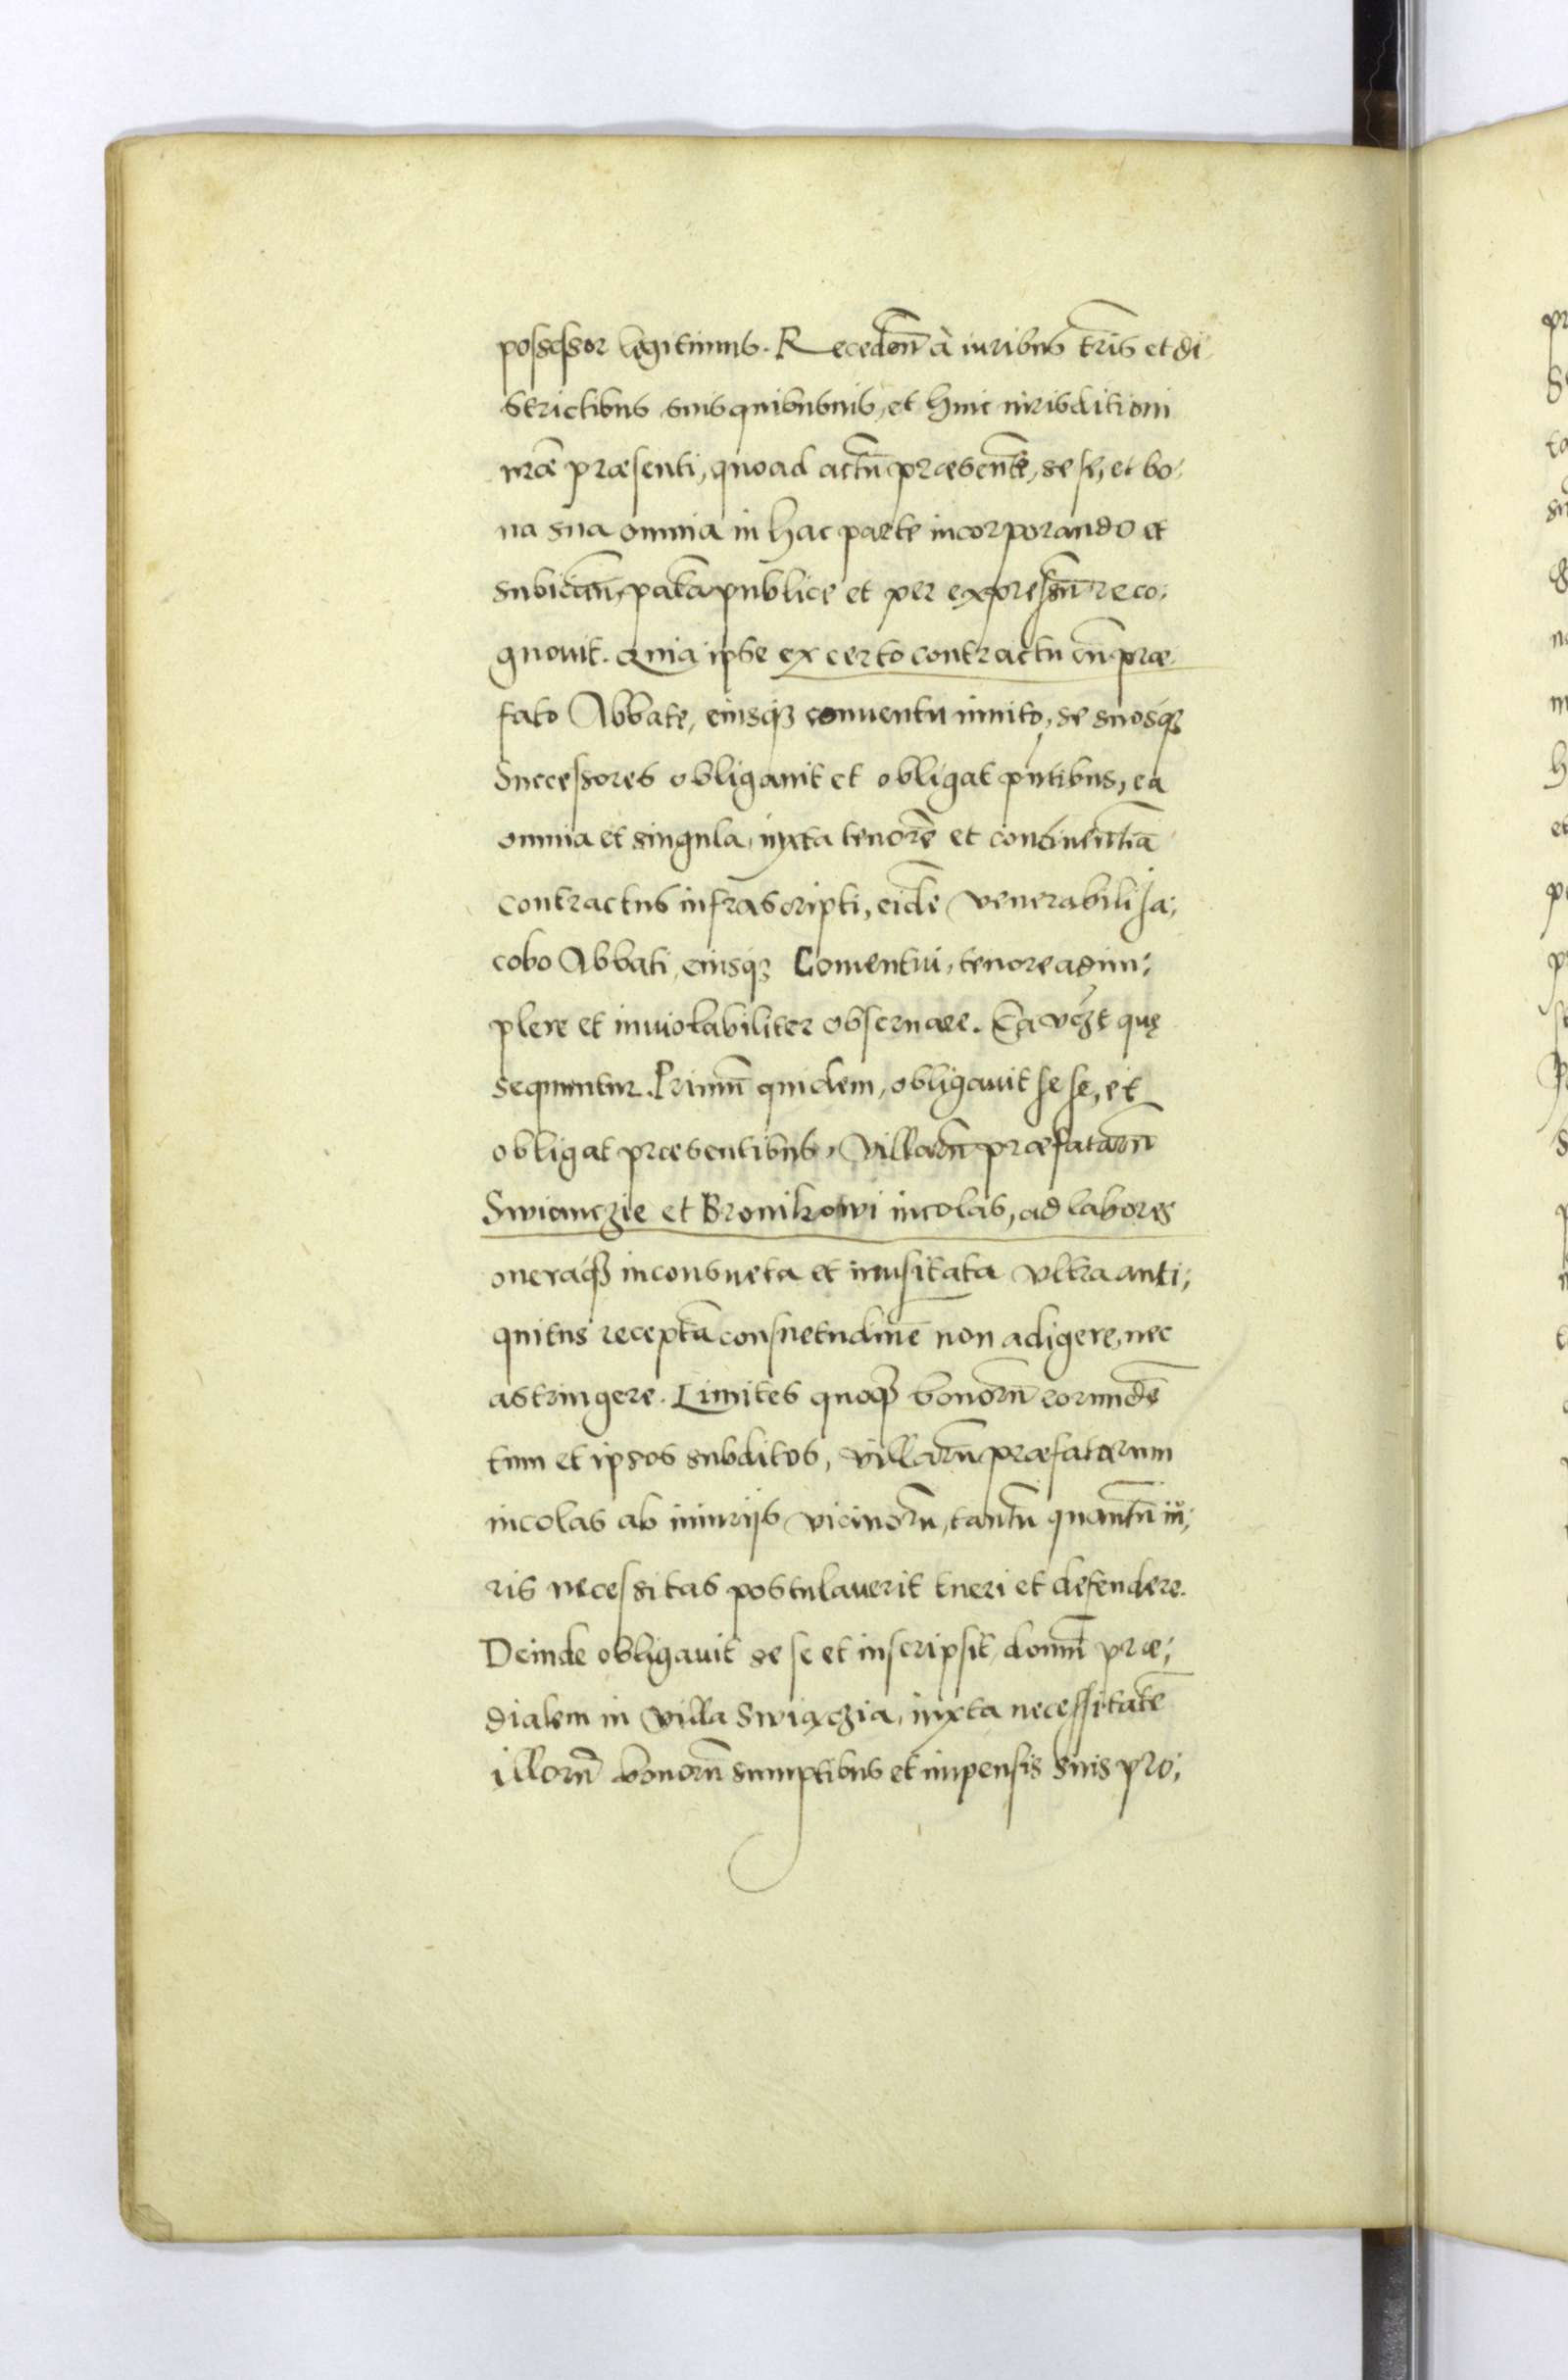 possessor legitimus. Recedeñ à iuribus t̃ris et di¬
strictibus suis quibusuis, et huic iurisditioni
nr̃æ præsenti, quoad actũ præsentẽ, se se, et bo:
na sua omnia in hac parte incorporando et
subicieñ, palã publice et per expressũ reco:
gnouit. Quia ipse ex certo contractu cũ præ:
fato Abbate, eiusq̃ conuentu innito, se suosq̃
Successores obligauit et obligat pñtibus, ea
omnia et singula, iuxta tenorẽ et continentiã
contractus infrascripti, eidẽ venerabili Ja:
cobo Abbati, eiusq̃ Conuentui, tenore adim:
plere et inuiolabiliter obseruare. Ea vcz̃t quę
sequuntur. Primũ quidem, obligauit se se, et
obligat præsentibus, Villarũ præfatarũ
Swianczie et Bronikowi incolas, ad labores
oneraq̃ inconsueta et inusitata vltra anti:
quitus receptã consuetudinẽ non adigere, nec
astringere. Limites quoq̃ bonorũ eorundẽ
tum et ipsos subditos, villarũ præfatarum
incolas ab iniurijs vicinorũ, tantũ quantũ iu:
ris necessitas postulauerit tueri et defendere.
Deinde obligauit se se et inscripsit, domũ præ:
dialem in villa Swiączia, iuxta necessitatẽ
illorũ bonorũ sumptibus et impensis suis pro: